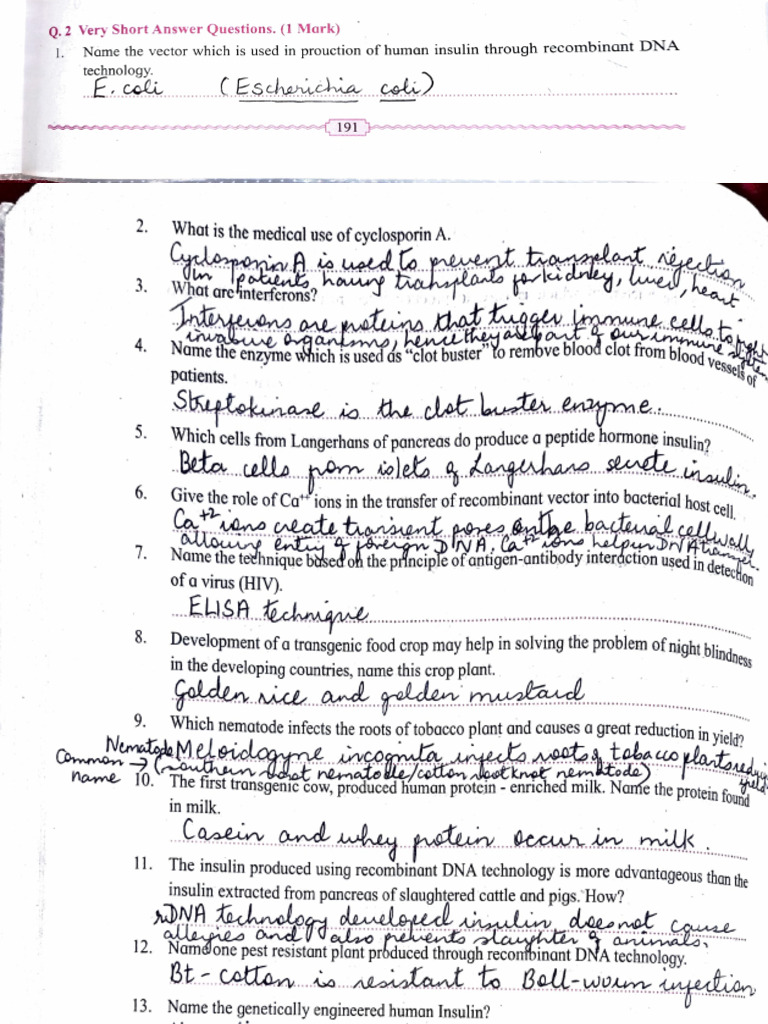 Q. 2 Very Short Answer Questions. (1 Mark)
1. Name the vector which is used in prouction of human insulin through recombinant DNA
technology.
E. coli (Escherichia coli)
191
2. What is the medical use of cyclosporin A.
Cyclosporin A is used to prevent transplant rejection
in patients having transplants for kidney, liver, heart
3. What are interferons?
Interferons are proteins that trigger immune cells to fight
invasive organisms, hence they are part of our immune system
4. Name the enzyme which is used as “clot buster” to remove blood clot from blood vessels of
patients.
Streptokinase is the clot buster enzyme.
5. Which cells from Langerhans of pancreas do produce a peptide hormone insulin?
Beta cells from islets of Langerhans secrete insulin.
6. Give the role of Ca⁺⁺ ions in the transfer of recombinant vector into bacterial host cell.
Ca⁺² ions create transient pores on the bacterial cell wall,
allowing entry of foreign DNA. Ca⁺² ions help in DNA transfer.
7. Name the technique based on the principle of antigen-antibody interaction used in detection
of a virus (HIV).
ELISA technique
8. Development of a transgenic food crop may help in solving the problem of night blindness
in the developing countries, name this crop plant.
Golden rice and golden mustard
9. Which nematode infects the roots of tobacco plant and causes a great reduction in yield?
Nematode Meloidogyne incognita infects roots of tobacco plants reducing yield
Common name → (southern root nematode/cotton root knot nematode)
10. The first transgenic cow, produced human protein - enriched milk. Name the protein found
in milk.
Casein and whey protein occur in milk.
11. The insulin produced using recombinant DNA technology is more advantageous than the
insulin extracted from pancreas of slaughtered cattle and pigs. How?
rDNA technology developed insulin does not cause
allergies and also prevents slaughter of animals.
12. Name one pest resistant plant produced through recombinant DNA technology.
Bt - cotton is resistant to Boll-worm infection
13. Name the genetically engineered human Insulin?